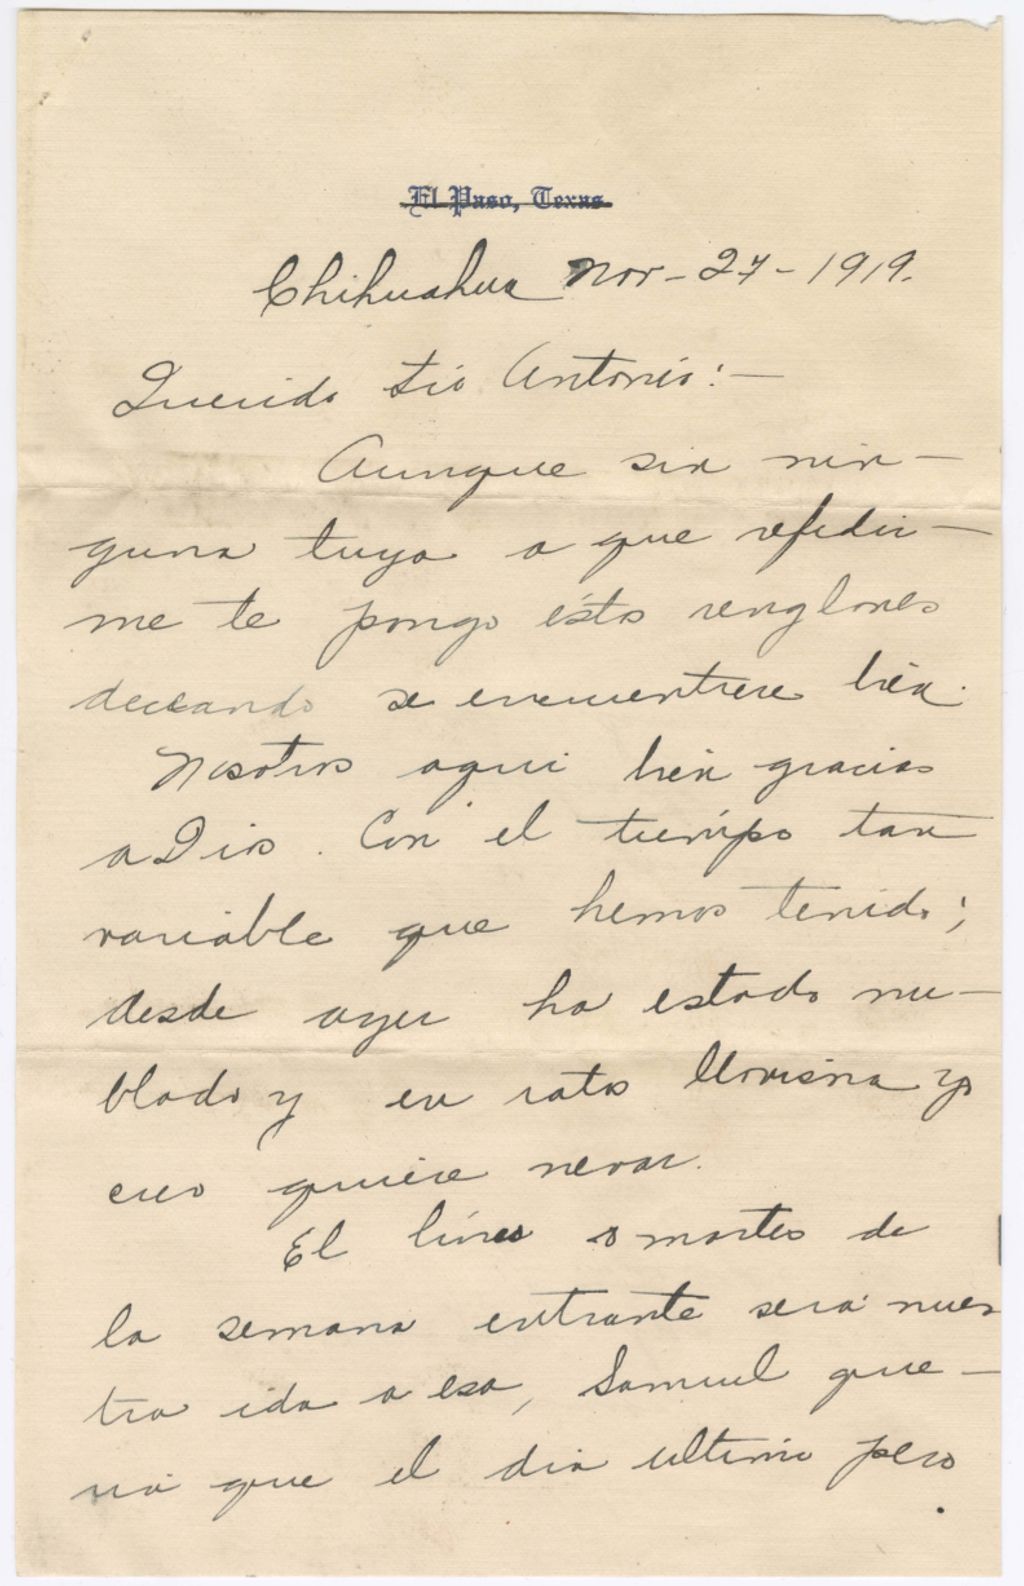 El Paso, Texas
Chihuahua Nov-27-1919.
Querido tio Antonio:—
Aunque sin nin-
guna tuya a que referir-
me te pongo éstos renglones
deceando se encuentren bién.
Nosotros aqui bién gracias
a Dios. Con el tiempo tan
variable que hemos tenido;
desde ayer ha estado nu-
blado y en ratos llovisna yo
creo quiere nevar.
El lúnes o martes de
la semana entrante será nues
tra ida a esa, Samuel que-
ria que el dia ultimo pero